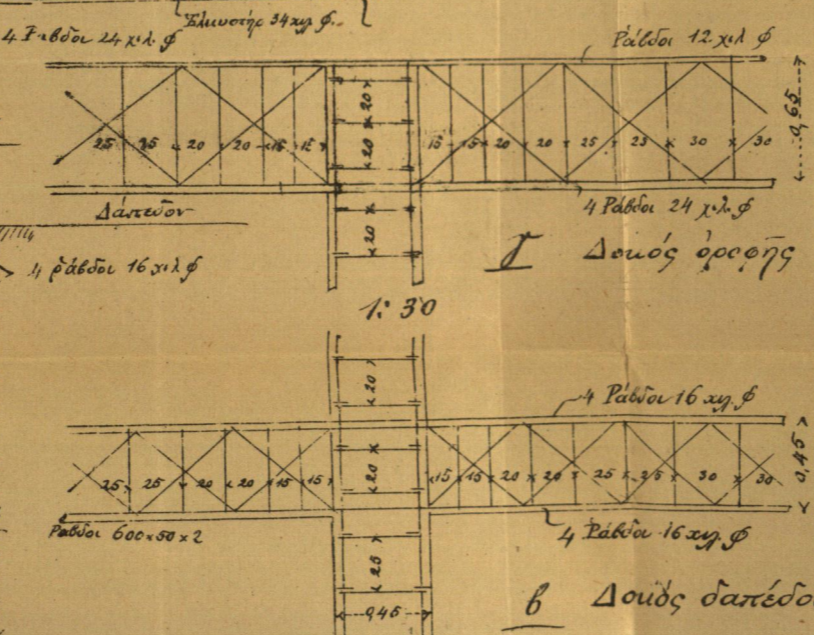 Ἑλκυστήρ 34 χιλ φ.
4 Ράβδοι 24 χιλ. φ
Ράβδοι 12 χιλ φ
20
20
25 25 20 20 15 15
15 15 20 20 25 25 30 30
0,65
Δάπεδον
20
4 Ράβδοι 24 χιλ φ
4 ράβδοι 16 χιλ φ
γ Δοκός ὀροφῆς
1:30
20
4 Ράβδοι 16 χιλ φ
20
25 25 20 20 15 15
15 15 20 20 25 25 30 30
0,45
Ράβδοι 600×50×2
4 Ράβδοι 16 χιλ. φ
25
0,45
β Δοκός δαπέδο